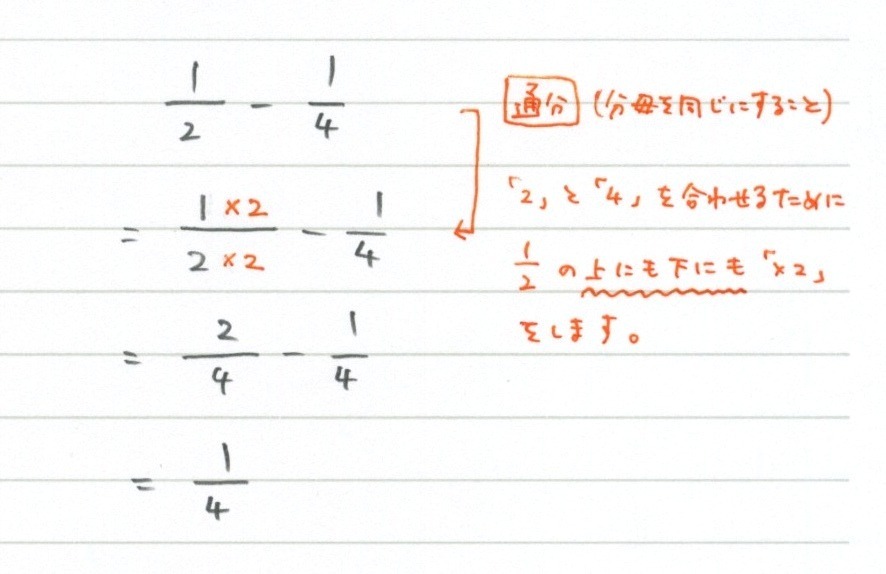 1/2 - 1/4
= 1×2/2×2 - 1/4
= 2/4 - 1/4
= 1/4
通分 (分母を同じにすること)
「2」と「4」を合わせるために
1/2 の上にも下にも「×2」
をします。